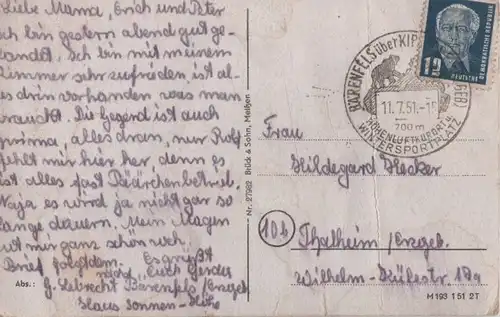 Liebe Mama, Erich und Peter
Ich bin gestern abend gut ge-
landet. Ich bin mit meinem
Zimmer sehr zufrieden, ist al-
les drin vorhanden was man
braucht. Die Gegend ist auch
prima, alles dran, nur Rolf
fehlt mir hier her denn es
ist alles fast Päärchenbetrieb.
Naja es wird ja nicht gar so
lange dauern. Mein Magen
tut mir ganz schön weh.
Brief folgt dem. Es grüßt
Euch Gerda
Abs.: G. Liebrecht Bärenfels/Erzgeb.
Haus Sonnen-Höhe
Nr. 27982 Brück & Sohn, Meißen
BÄRENFELS über KIP
GEB)
11.7.51.-1
700 m
HÖHENLUFTKURORT u.
WINTERSPORTPLATZ
12
DEUTSCHE
DEMOKRATISCHE REPUBLIK
Frau
Hildegard Hecker
10b Thalheim/Erzgeb.
Wilhelm-Külz str 17a
M 193 1 51 2T